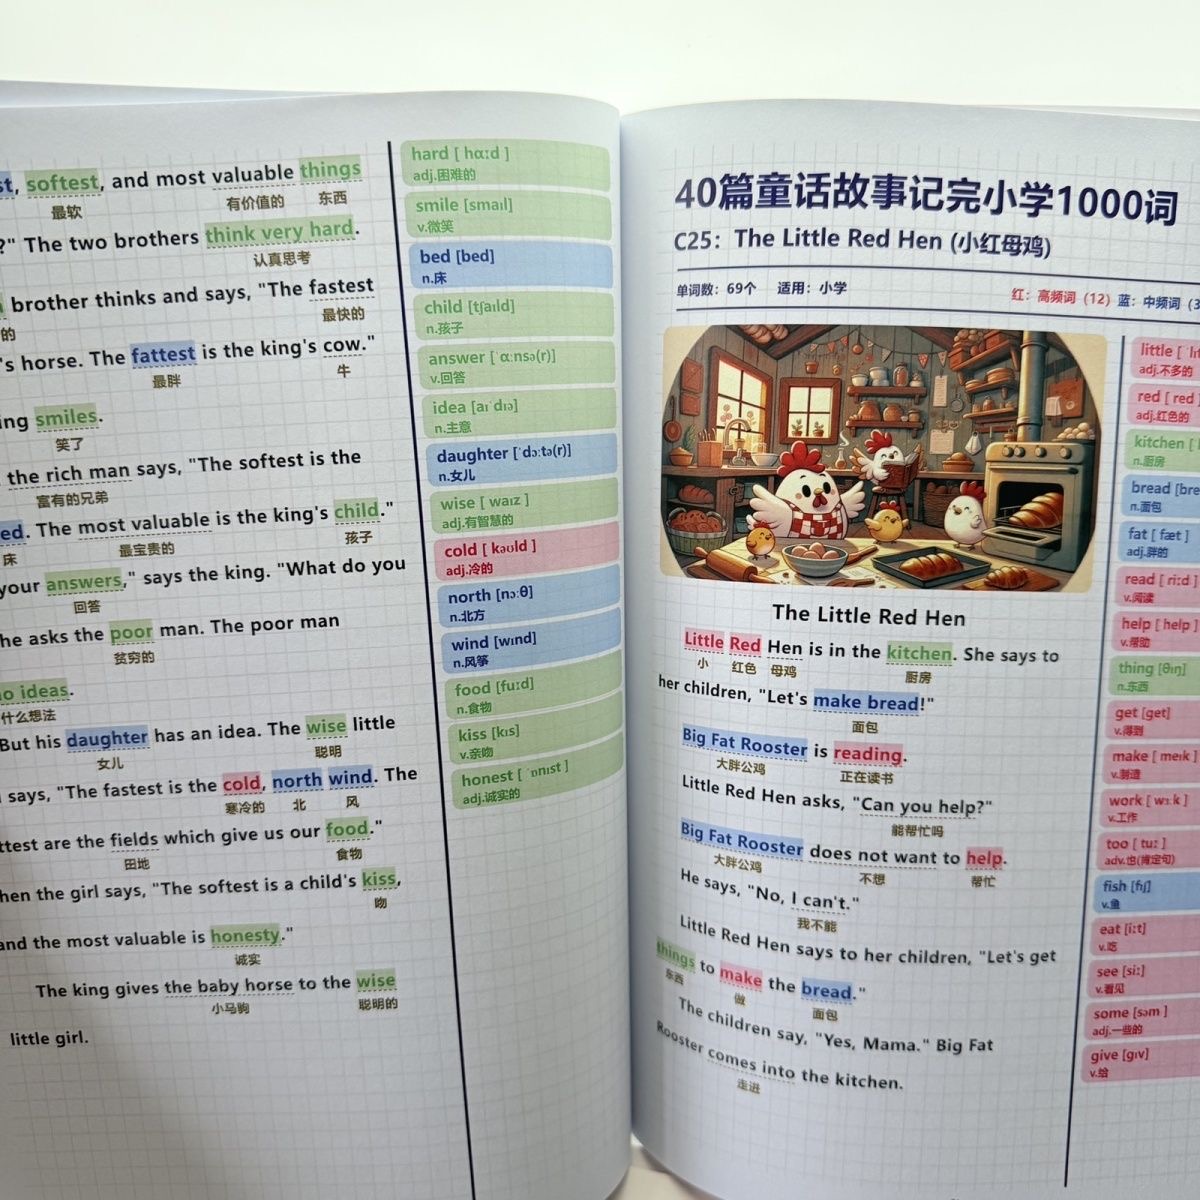 softest, and most valuable things
最软 有价值的 东西
?" The two brothers think very hard.
认真思考
brother thinks and says, "The fastest
的 最快的
's horse. The fattest is the king's cow."
最胖 牛
smiles.
笑了
the rich man says, "The softest is the
富有的兄弟
The most valuable is the king's child."
床 最宝贵的 孩子
your answers," says the king. "What do you
回答
he asks the poor man. The poor man
贫穷的
ideas.
什么想法
But his daughter has an idea. The wise little
女儿 聪明
says, "The fastest is the cold, north wind. The
寒冷的 北 风
are the fields which give us our food."
田地 食物
the girl says, "The softest is a child's kiss,
吻
and the most valuable is honesty."
诚实
The king gives the baby horse to the wise
小马驹 聪明的
little girl.
hard [ hɑːd ]
adj.困难的
smile [smaɪl]
v.微笑
bed [bed]
n.床
child [tʃaɪld]
n.孩子
answer [ˈɑːnsə(r)]
v.回答
idea [aɪˈdɪə]
n.主意
daughter [ˈdɔːtə(r)]
n.女儿
wise [ waɪz ]
adj.有智慧的
cold [ kəʊld ]
adj.冷的
north [nɔːθ]
n.北方
wind [wɪnd]
n.风筝
food [fuːd]
n.食物
kiss [kɪs]
v.亲吻
honest [ ˈɒnɪst ]
adj.诚实的
40篇童话故事记完小学1000词
C25: The Little Red Hen (小红母鸡)
单词数: 69个 适用: 小学
红: 高频词 (12) 蓝: 中频词
The Little Red Hen
Little Red Hen is in the kitchen. She says to
小 红色 母鸡 厨房
her children, "Let's make bread!"
面包
Big Fat Rooster is reading.
大胖公鸡 正在读书
Little Red Hen asks, "Can you help?"
能帮忙吗
Big Fat Rooster does not want to help.
大胖公鸡 不想 帮忙
He says, "No, I can't."
我不能
Little Red Hen says to her children, "Let's get
things to make the bread."
东西 做 面包
The children say, "Yes, Mama." Big Fat
Rooster comes into the kitchen.
走进
little
adj.不多的
red [ red
adj.红色的
kitchen
n.厨房
bread
n.面包
fat [ fæt ]
adj.胖的
read [ riːd ]
v.阅读
help [ help ]
v.帮助
thing [θɪŋ]
n.东西
get [get]
v.得到
make [ meɪk ]
v.制造
work [ wɜːk ]
v.工作
too [ tuː ]
adv.也(肯定句)
fish [fɪʃ]
v.鱼
eat [iːt]
v.吃
see [siː]
v.看见
some [səm ]
adj.一些的
give [gɪv]
v.给